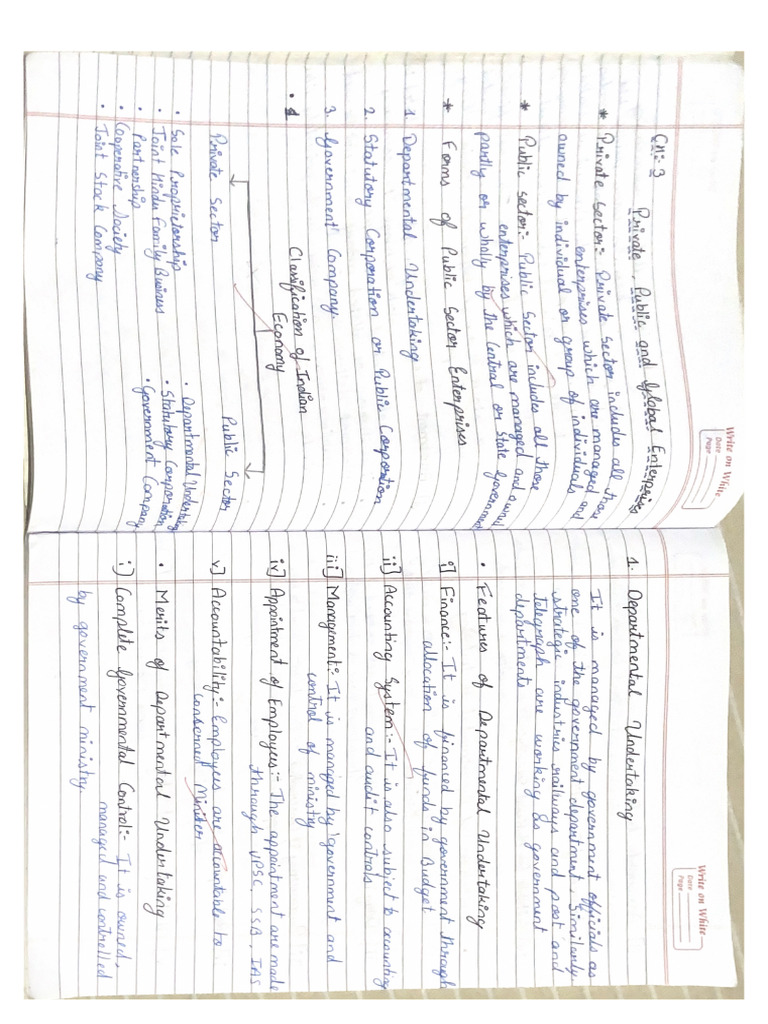 Write on White
Date
Page
Ch:- 3
Private, Public and Global Enterprises
* Private Sector:- Private Sector includes all those
enterprises which are managed and
owned by individual or group of individuals
* Public sector:- Public Sector includes all those
enterprises which are managed and owned
partly or wholly by the Central or State Government
* Forms of Public Sector Enterprises
1. Departmental Undertaking
2. Statutory Corporation or Public Corporation
3. Government Company.
Classification of Indian
Economy
Private Sector
Public Sector
• Sole Proprietorship
• Joint Hindu Family Business
• Partnership
• Cooperative Society
• Joint Stock Company
• Departmental Undertaking
• Statutory Corporation
• Government Company
Write on White
Date
Page
1. Departmental Undertaking
It is managed by government officials as
one of the government department. Similarly
strategic industries railways and post and
telegraph are working as government
departments
• Features of Departmental Undertaking
i] Finance:- It is financed by government through
allocation of funds in Budget
ii] Accounting System:- It is also subject to accounting
and audit controls
iii] Management:- It is managed by government and
control of ministry
iv] Appointment of Employees:- The appointment are made
through UPSC, SSB, IAS
v] Accountability:- Employees are accountable to
conserned Minister
• Merits of Departmental Undertaking
i] Complete Governmental Control:- It is owned,
managed and controlled
by government ministry.